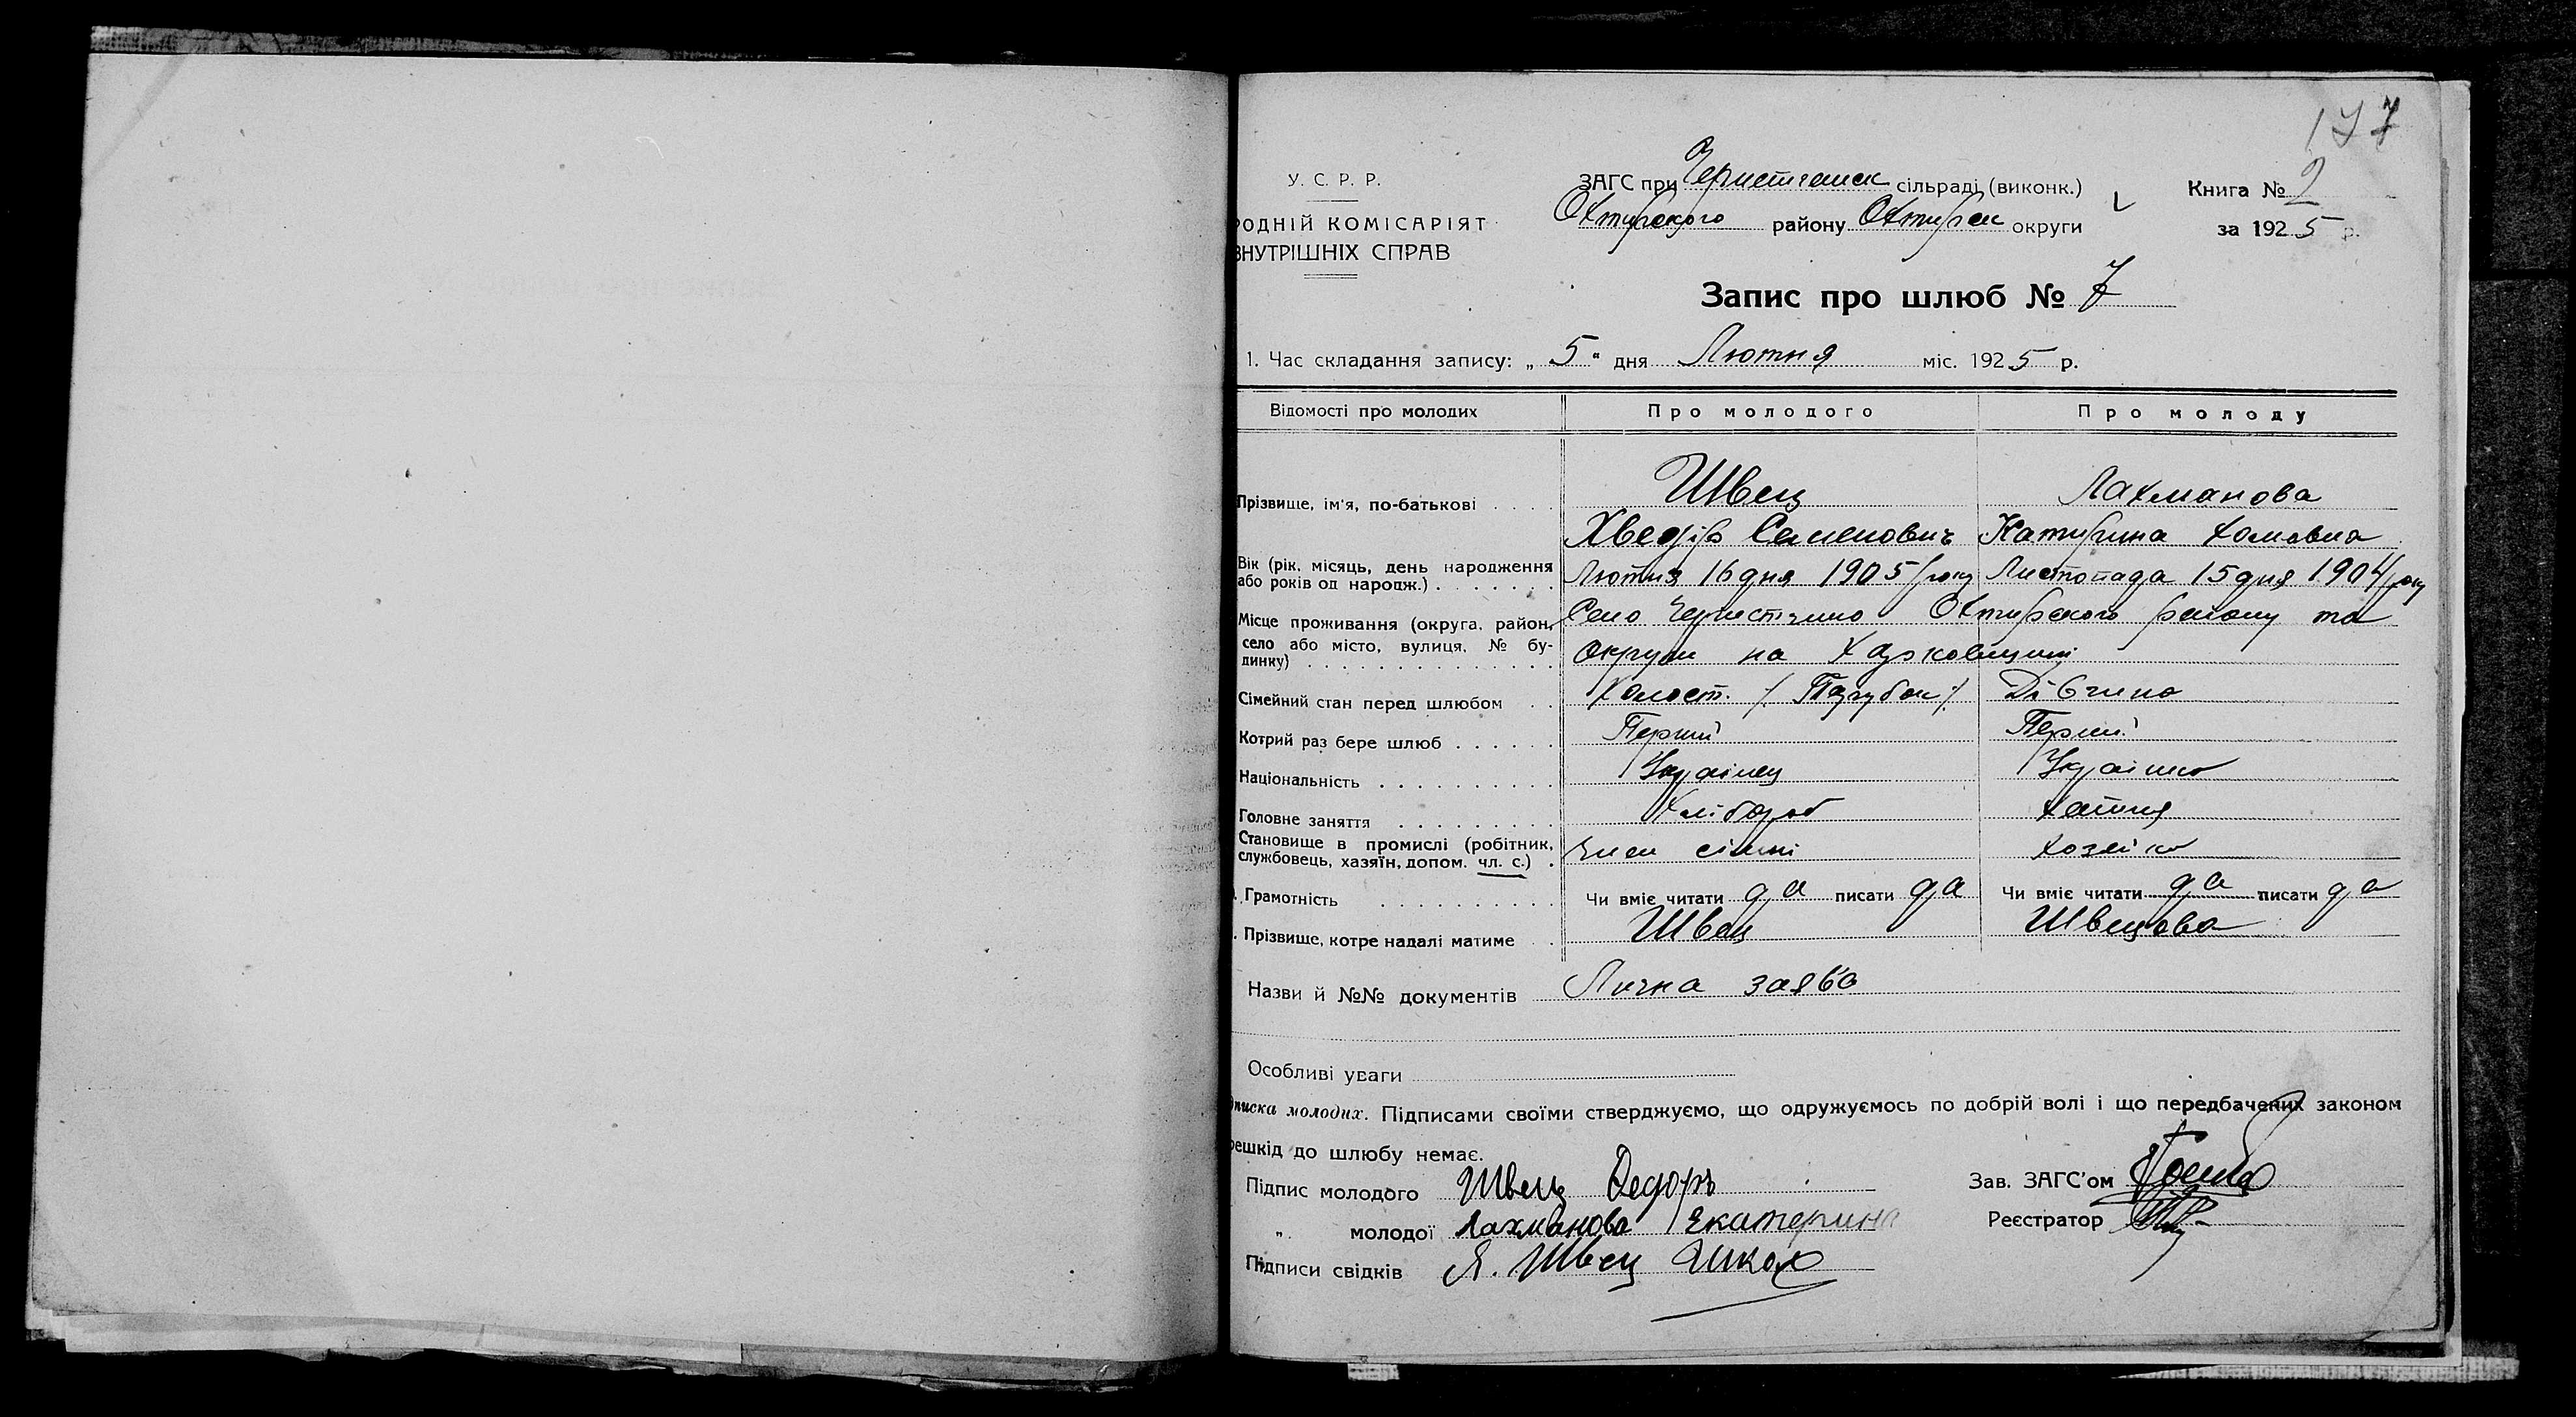 177
У. С. Р. Р.
РОДНІЙ КОМІСАРІЯТ
ВНУТРІШНІХ СПРАВ
ЗАГС при сільраді (виконк.)
Охтирського району Охтирськ округи
Книга № 2
за 1925 р.
Запис про шлюб № 7
1. Час складання запису: „ 5 " дня Лютня міс. 1925 р.
Відомості про молодих Про молодого Про молоду
Прізвище, ім'я, по-батькові . . . . Швец Лахманова
Хведір Семенович Катирина Хомовна
Вік (рік, місяць, день народження або років од народж.) . . . . . . . Лютня 16 дня 1905/року Листопада 15 дня 1904/року
Місце проживання (округа, район, село або місто, вулиця, № будинку) . . . . . . . . . . . . . . Село Охтирського району та
Округи на Харковщині
Сімейний стан перед шлюбом . . Холост. /. Парубок /. Дівчина
Котрий раз бере шлюб . . . . . . Перший Перший
Національність . . . . . . . . . . Українец Українка
Головне заняття . . . . . . . . . Хлібороб Хатня
Становище в промислі (робітник, службовець, хазяїн, допом. чл. с.) . Член сімні хозяйка
. Грамотність . . . . . . . . . . Чи вміє читати да писати да Чи вміє читати да писати да
. Прізвище, котре надалі матиме . . Швец Швецова
Назви й №№ документів Лична заява
Особливі уваги
дписка молодих. Підписами своїми стверджуємо, що одружуємось по добрій волі і що передбачених законом
решкід до шлюбу немає.
Підпис молодого Швец Федоръ
Зав. ЗАГС'ом
„ молодої Лахманова Екатерина
Реєстратор
Підписи свідків Я. Швец